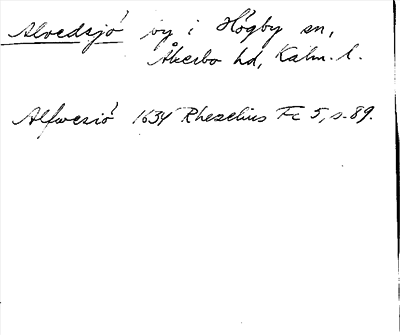 Alvedsjö by i Högby sn,
Åkerbo hd, Kalm. l.
Alfwesiö 1634 Rhezelius Fc 5, s. 89.